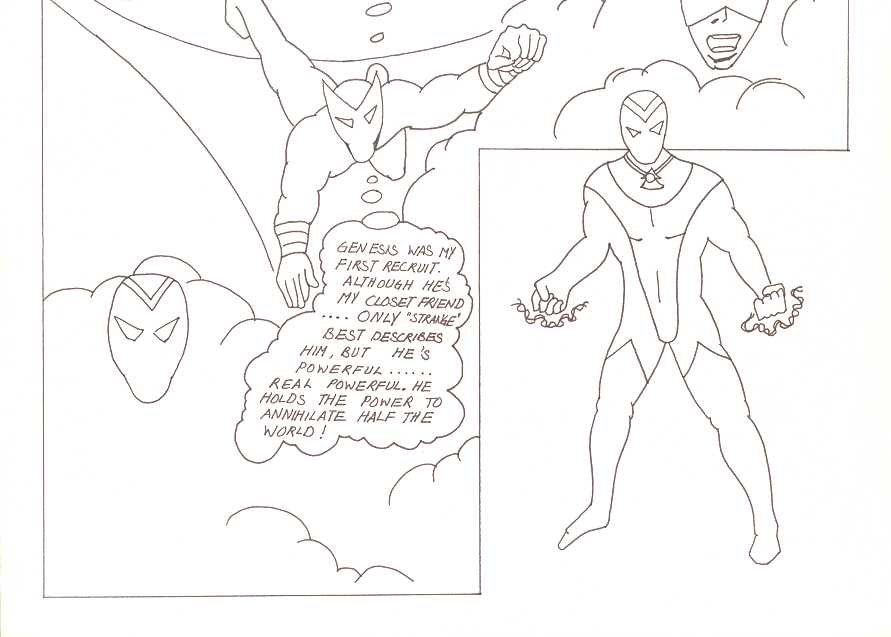 GENESIS WAS MY
FIRST RECRUIT.
ALTHOUGH HE'S
MY CLOSET FRIEND
.... ONLY "STRANGE"
BEST DESCRIBES
HIM, BUT HE'S
POWERFUL ......
REAL POWERFUL. HE
HOLDS THE POWER TO
ANNIHILATE HALF THE
WORLD!